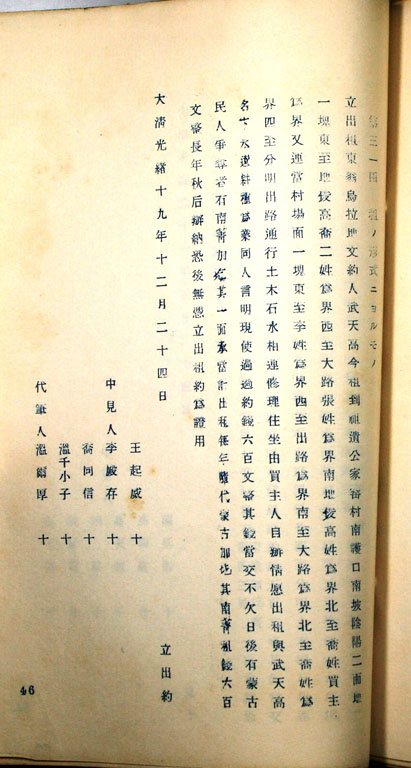 第三一圖 契ノ形式ニヨルモノ
立出租東翁烏拉地文約人武天高今租到祖遺公家寨村南護口南坡陰陽二面地
一塊東至地後高喬二姓爲界西至大路張姓爲界南地後高姓爲界北至喬姓買主
爲界又連當村場面一塊東至李姓爲界西至出路爲界南至大路爲界北至喬姓爲
界四至分明出路通行土木石水相連修理住坐由買主人自辦情愿出租與武天高
名下永遠耕種爲業同人言明現使過過約錢六百文整其錢當交不欠日後有蒙古
民人爭奪者有南蒼加圪其一面承當計出租每年隨代蒙古加圪其南蒼租錢六百
文整長年秋后辦納恐後無憑立出租約爲證用
大淸光緖十九年十二月二十四日 立出約
王起威 十
中見人李殿存 十
喬同信 十
溫千小子 十
代筆人溫爾厚 十
46